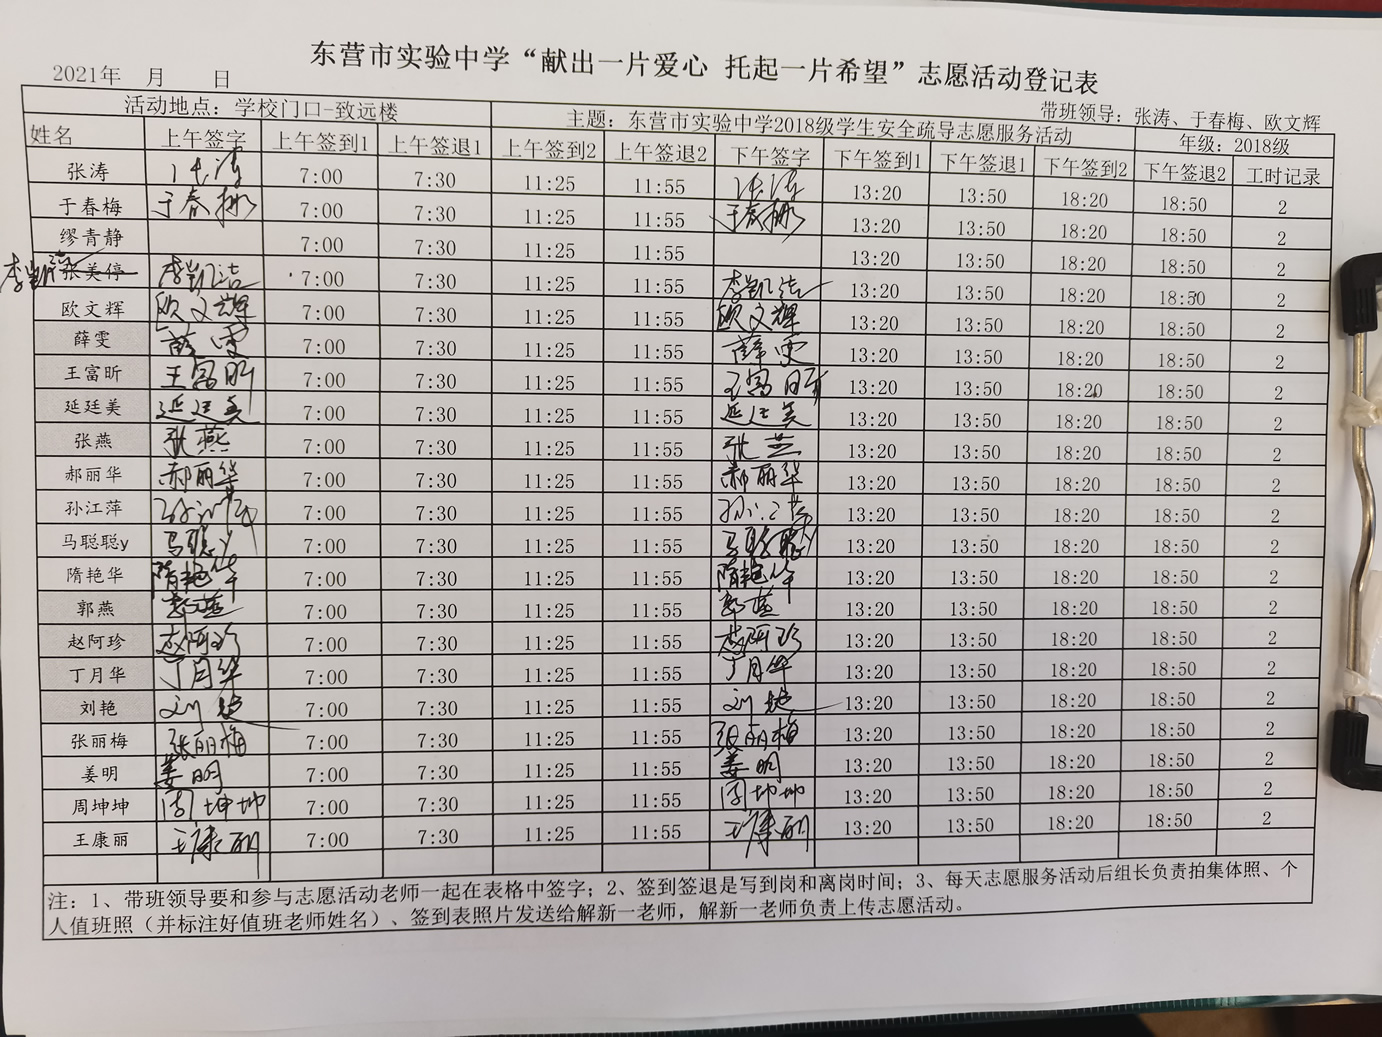 东营市实验中学“献出一片爱心 托起一片希望”志愿活动登记表
2021年 月 日
带班领导：张涛、于春梅、欧文辉
活动地点：学校门口-致远楼 主题：东营市实验中学2018级学生安全疏导志愿服务活动 年级：2018级
姓名 上午签字 上午签到1 上午签退1 上午签到2 上午签退2 下午签字 下午签到1 下午签退1 下午签到2 下午签退2 工时记录
张涛 张涛 7:00 7:30 11:25 11:55 张涛 13:20 13:50 18:20 18:50 2
于春梅 于春梅 7:00 7:30 11:25 11:55 于春梅 13:20 13:50 18:20 18:50 2
缪青静 7:00 7:30 11:25 11:55 13:20 13:50 18:20 18:50 2
李凯洁 张美停 李凯洁 7:00 7:30 11:25 11:55 李凯洁 13:20 13:50 18:20 18:50 2
欧文辉 欧文辉 7:00 7:30 11:25 11:55 欧文辉 13:20 13:50 18:20 18:50 2
薛雯 薛雯 7:00 7:30 11:25 11:55 薛雯 13:20 13:50 18:20 18:50 2
王富昕 王富昕 7:00 7:30 11:25 11:55 王富昕 13:20 13:50 18:20 18:50 2
延廷美 延廷美 7:00 7:30 11:25 11:55 延廷美 13:20 13:50 18:20 18:50 2
张燕 张燕 7:00 7:30 11:25 11:55 张燕 13:20 13:50 18:20 18:50 2
郝丽华 郝丽华 7:00 7:30 11:25 11:55 郝丽华 13:20 13:50 18:20 18:50 2
孙江萍 孙江萍 7:00 7:30 11:25 11:55 孙江萍 13:20 13:50 18:20 18:50 2
马聪聪y 马聪y 7:00 7:30 11:25 11:55 马聪聪y 13:20 13:50 18:20 18:50 2
隋艳华 隋艳华 7:00 7:30 11:25 11:55 隋艳华 13:20 13:50 18:20 18:50 2
郭燕 郭燕 7:00 7:30 11:25 11:55 郭燕 13:20 13:50 18:20 18:50 2
赵阿珍 赵阿珍 7:00 7:30 11:25 11:55 赵阿珍 13:20 13:50 18:20 18:50 2
丁月华 丁月华 7:00 7:30 11:25 11:55 丁月华 13:20 13:50 18:20 18:50 2
刘艳 刘艳 7:00 7:30 11:25 11:55 刘艳 13:20 13:50 18:20 18:50 2
张丽梅 张丽梅 7:00 7:30 11:25 11:55 张丽梅 13:20 13:50 18:20 18:50 2
姜明 姜明 7:00 7:30 11:25 11:55 姜明 13:20 13:50 18:20 18:50 2
周坤坤 周坤坤 7:00 7:30 11:25 11:55 周坤坤 13:20 13:50 18:20 18:50 2
王康丽 王康丽 7:00 7:30 11:25 11:55 王康丽 13:20 13:50 18:20 18:50 2
注：1、带班领导要和参与志愿活动老师一起在表格中签字；2、签到签退是写到岗和离岗时间；3、每天志愿服务活动后组长负责拍集体照、个
人值班照（并标注好值班老师姓名）、签到表照片发送给解新一老师，解新一老师负责上传志愿活动。